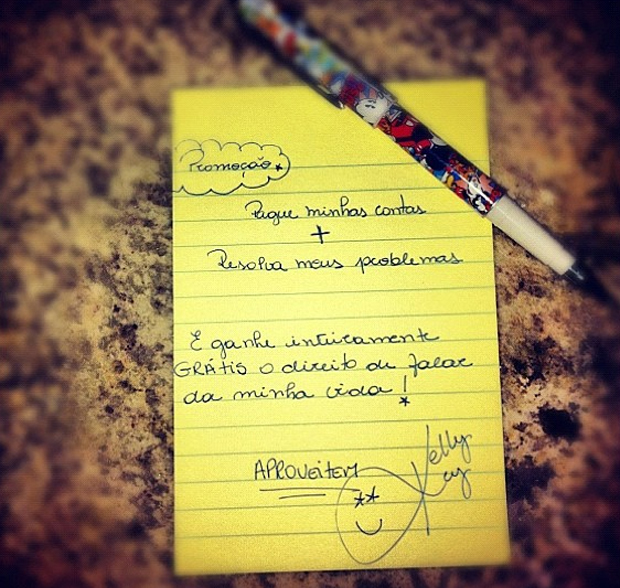 Promoção
Pague minhas contas
+
Resolva meus problemas
E ganhe inteiramente
GRÁTIS o direito de falar
da minha vida!
APROVEITEM
Kelly